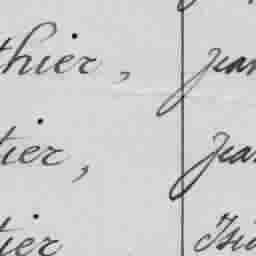 thier, Jean
tier, Jean
tier Isi